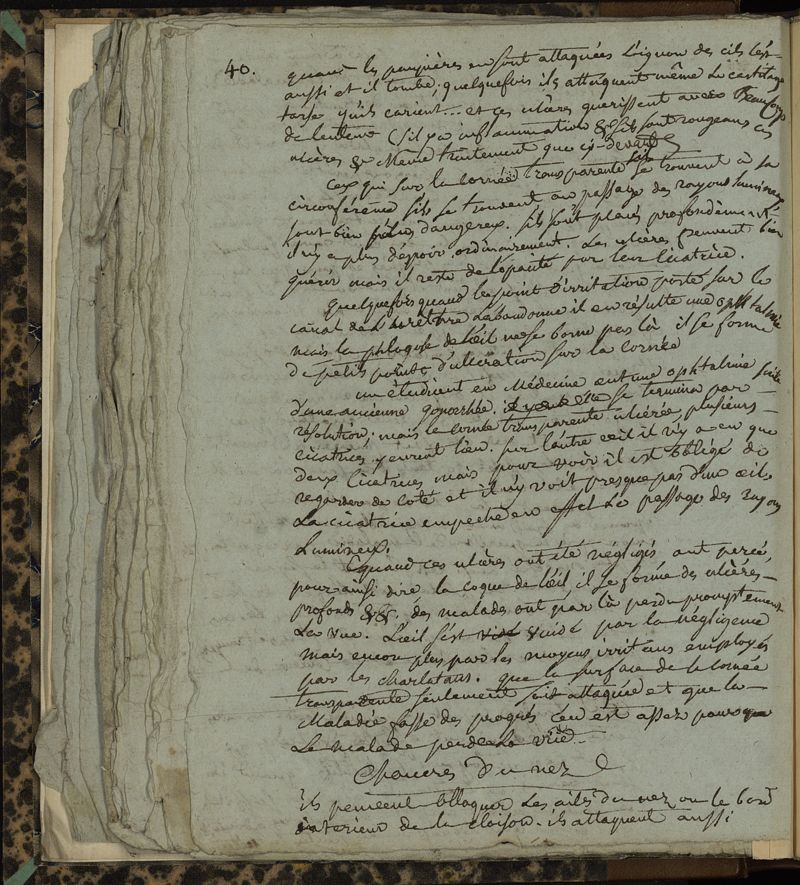 40.
quand les paupières en sont attaquées l'oignon des cils l'est
aussi et il tombe; quelquefois ils attaquent même le cartilage
tarse qu'ils carient... et ces ulcères querissent avec Beaucoup
de lenteur (s'il y a inflammation & s'ils sont rougeans ces
ulcères & même traitement que ci-devant)
Ceux qui sur la Cornée transparente se trouvent à sa
circonférence s'ils se trouvent au passage des rayons lumineux
sont bien plus dangereux. s'ils sont placés profondément
il n'y a plus d'espoir ordinairement. Les ulcères peuvent bien
guérir mais il reste de l'opacité par leur Cicatrice.
quelquefois quand le point d'irritation porté sur le
canal de l'urethre l'abandonne il en résulte une ophtalmie
mais la phlogose de l'œil ne se borne pas là il se forme
de petits points d'ulcération sur la cornée
un étudient en Médecine eut une ophtalmie suite
d'une ancienne gonorrhée. elle se termina par
résolution; mais la cornée transparente ulcérée, plusieurs
cicatrices y eurent lieu. sur l'autre œil il n'y a eu que
deux Cicatrices mais pour voir il est obligé de
regarder de coté et il n'y voit presque pas d'un œil.
La cicatrice empeche en effet le passage des rayons
Lumineux.
Quand ces ulcères ont été négligés ont percé,
pour ainsi dire la coque de l'œil il se forme des ulcères
profonds &&. des malades ont par là perdu promptement
La vue. L'œil s'est vidé vuidé par la négligence
mais encore plus par les moyens irritans employés
par les charlatans. que la surface de la cornée
transparente seulement soit attaquée et que la
Maladie fasse des progrès c'en est assez pour que
le malade perde la vue.
Chancres Du nez
ils peuvent attaquer les ailes du nez ou le bord
anterieur de la cloison. ils attaquent aussi